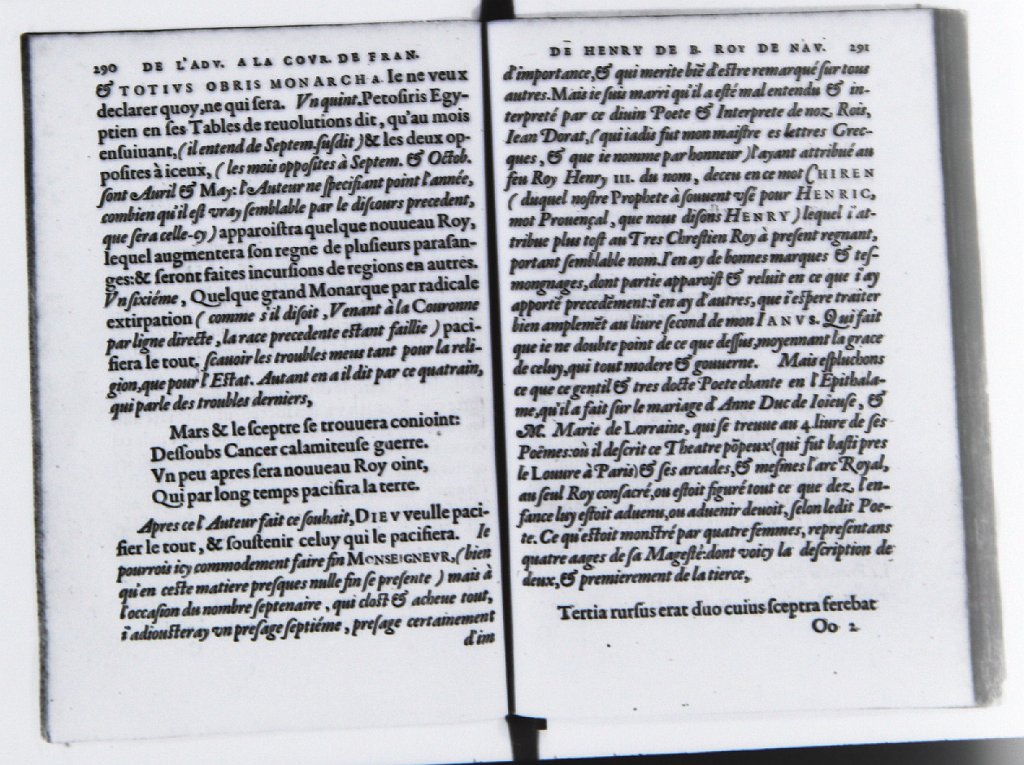 290 DE L'ADV. A LA COVR. DE FRAN.
& TOTIVS OBRIS MONARCHA. Ie ne veux
declarer quoy, ne qui sera. Vn quint. Petosiris Egy-
ptien en ses Tables de reuolutions dit, qu'au mois
ensuiuant, (il entend de Septem. susdit) & les deux op-
posites à iceux, (les mois opposites à Septem. & Octob.
sont Auril & May: l'Auteur ne specifiant point l'année,
combien qu'il est vray semblable par le discours precedent,
que sera celle-cy) apparoistra quelque nouueau Roy,
lequel augmentera son regne de plusieurs parasan-
ges: & seront faites incursions de regions en autres.
Vn sixiéme, Quelque grand Monarque par radicale
extirpation (comme s'il disoit, Venant à la Couronne
par ligne directe, la race precedente estant faillie) paci-
fiera le tout, scauoir les troubles meus tant pour la reli-
gion, que pour l'Estat. Autant en a il dit par ce quatrain,
qui parle des troubles derniers,
Mars & le sceptre se trouuera conioint:
Dessoubs Cancer calamiteuse guerre.
Vn peu apres sera nouueau Roy oint,
Qui par long temps pacifira la terre.
Apres ce l'Auteur fait ce souhait, DIEV veulle paci-
fier le tout, & soustenir celuy qui le pacifiera. Ie
pourrois icy commodement faire fin MONSEIGNEVR, (bien
qu'en ceste matiere presques nulle fin se presente) mais à
l'occasion du nombre septenaire, qui clost & acheue tout,
i'adiousteray vn presage septiéme, presage certainement
d'im
DE HENRY DE B. ROY DE NAV. 291
d'importance, & qui merite biē d'estre remarqué sur tous
autres. Mais ie suis marri qu'il a esté mal entendu & in-
terpreté par ce diuin Poete & Interprete de noz Rois,
Iean Dorat, (qui iadis fut mon maistre es lettres Grec-
ques, & que ie nomme par honneur) l'ayant attribué au
feu Roy Henry III. du nom, deceu en ce mot CHIREN
(duquel nostre Prophete à souuent vsé pour HENRIC,
mot Prouençal, que nous disons HENRY) lequel i'at-
tribue plus tost au Tres Chrestien Roy à present regnant,
portant semblable nom. I'en ay de bonnes marques & tes-
mongnages, dont partie apparoist & reluit en ce que i'ay
apporté precedēment: i'en ay d'autres, que i'espere traiter
bien amplemēt au liure second de mon IANVS. Qui fait
que ie ne doubte point de ce que dessus, moyennant la grace
de celuy, qui tout modere & gouuerne. Mais espluchons
ce que ce gentil & tres docte Poete chante en l'Epithala-
me, qu'il a fait sur le mariage d'Anne Duc de Ioieuse, &
M. Marie de Lorraine, qui se treuue au 4. liure de ses
Poēmes: où il descrit ce Theatre pōpeux (qui fut basti pres
le Louure à Paris) & ses arcades, & mesmes l'arc Royal,
au seul Roy consacré, ou estoit figuré tout ce que dez l'en-
fance luy estoit aduenu, ou aduenir deuoit, selon ledit Poe-
te. Ce qu'estoit monstré par quatre femmes, representans
quatre aages de sa Magesté: dont voicy la description de
deux, & premierement de la tierce,
Tertia rursus erat duo cuius sceptra ferebat
Oo 2